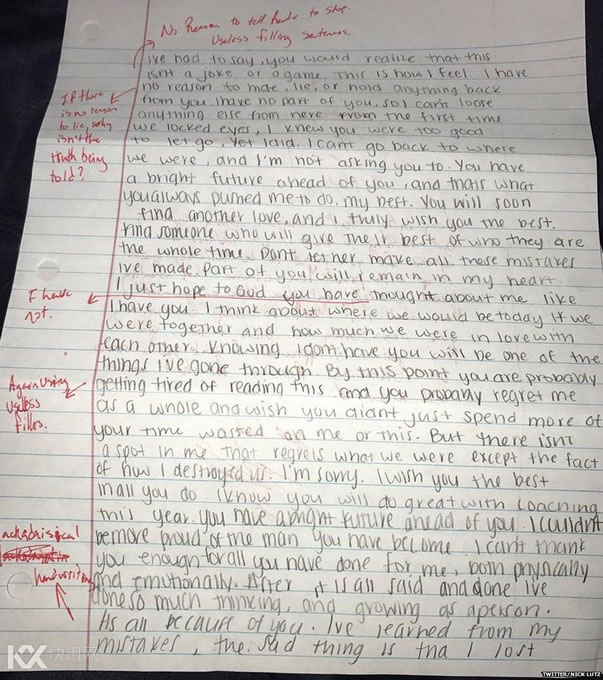 No Reason to tell Reader to stop.
Useless filling sentences.
ive had to say, you would realize that this
isnt a joke or a game. This is how I feel. I have
no reason to hide, lie, or hold anything back
from you. I have no part of you, so I can't loose
anything else from here. From the first time
we locked eyes, I knew you were too good
to let go, yet I did. I cant go back to where
we were, and I'm not asking you to. You have
a bright future ahead of you, and thats what
you always pushed me to do, my best. You will soon
find another love, and I truly wish you the best.
Find someone who will give their best of who they are
the whole time. Dont let her make all these mistakes
ive made. Part of you will remain in my heart.
I just hope to God you have thought about me like
I have you. I think about where we would be today if we
were together and how much we were in love with
each other. Knowing I dont have you will be one of the
things ive gone through. By this point you are probably
getting tired of reading this and you probably regret me
as a whole and wish you didnt just spend more of
your time wasted on me or this. But there isnt
a spot in me that regrets what we were except the fact
of how I destroyed us. I'm sorry. I wish you the best
in all you do. I know you will do great with coaching
this year. You have a bright future ahead of you. I couldn't
be more proud of the man you have become. I can't thank
you enough for all you have done for me, both physically
and emotionally. After it is all said and done ive
done so much thinking, and growing as a person.
Its all because of you. Ive learned from my
mistakes, the sad thing is tha I lost
If there
is no reason
to lie, why
isn't the
truth being
told?
I have
not.
Again using
useless
fillos.
handwriting
KX 快讯网
TWITTER/NICK LUTZ